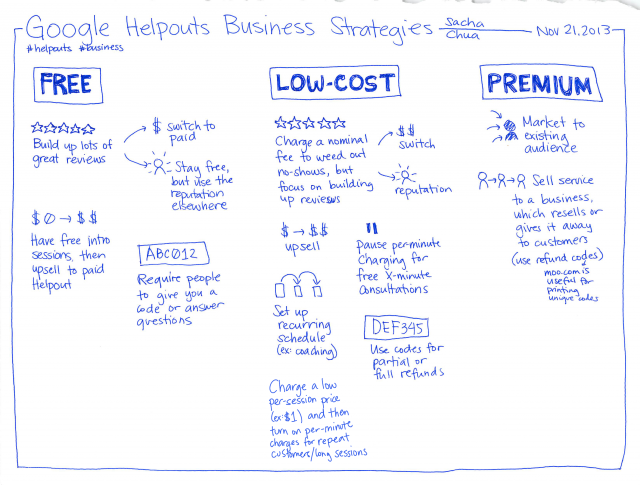 Google Helpouts Business Strategies Sacha Chua — Nov 21, 2013
#helpouts #business
FREE
☆☆☆☆☆
Build up lots of
great reviews
$ switch to
paid
Stay free,
but use the
reputation
elsewhere
$0 → $$
Have free intro
sessions, then
upsell to paid
Helpout
ABC012
Require people
to give you a
code or answer
questions
LOW-COST
☆☆☆☆☆
Charge a nominal
fee to weed out
no-shows, but
focus on building
up reviews
$$
switch
reputation
$ → $$
upsell
Set up
recurring
schedule
(ex: coaching)
Charge a low
per-session price
(ex: $1) and then
turn on per-minute
charges for repeat
customers/long sessions
Pause per-minute
Charging for
free X-minute
consultations
DEF345
Use codes for
partial or
full refunds
PREMIUM
Market to
existing
audience
Sell service
to a business,
which resells or
gives it away
to customers
(use refund codes)
moo.com is
useful for
printing
unique codes